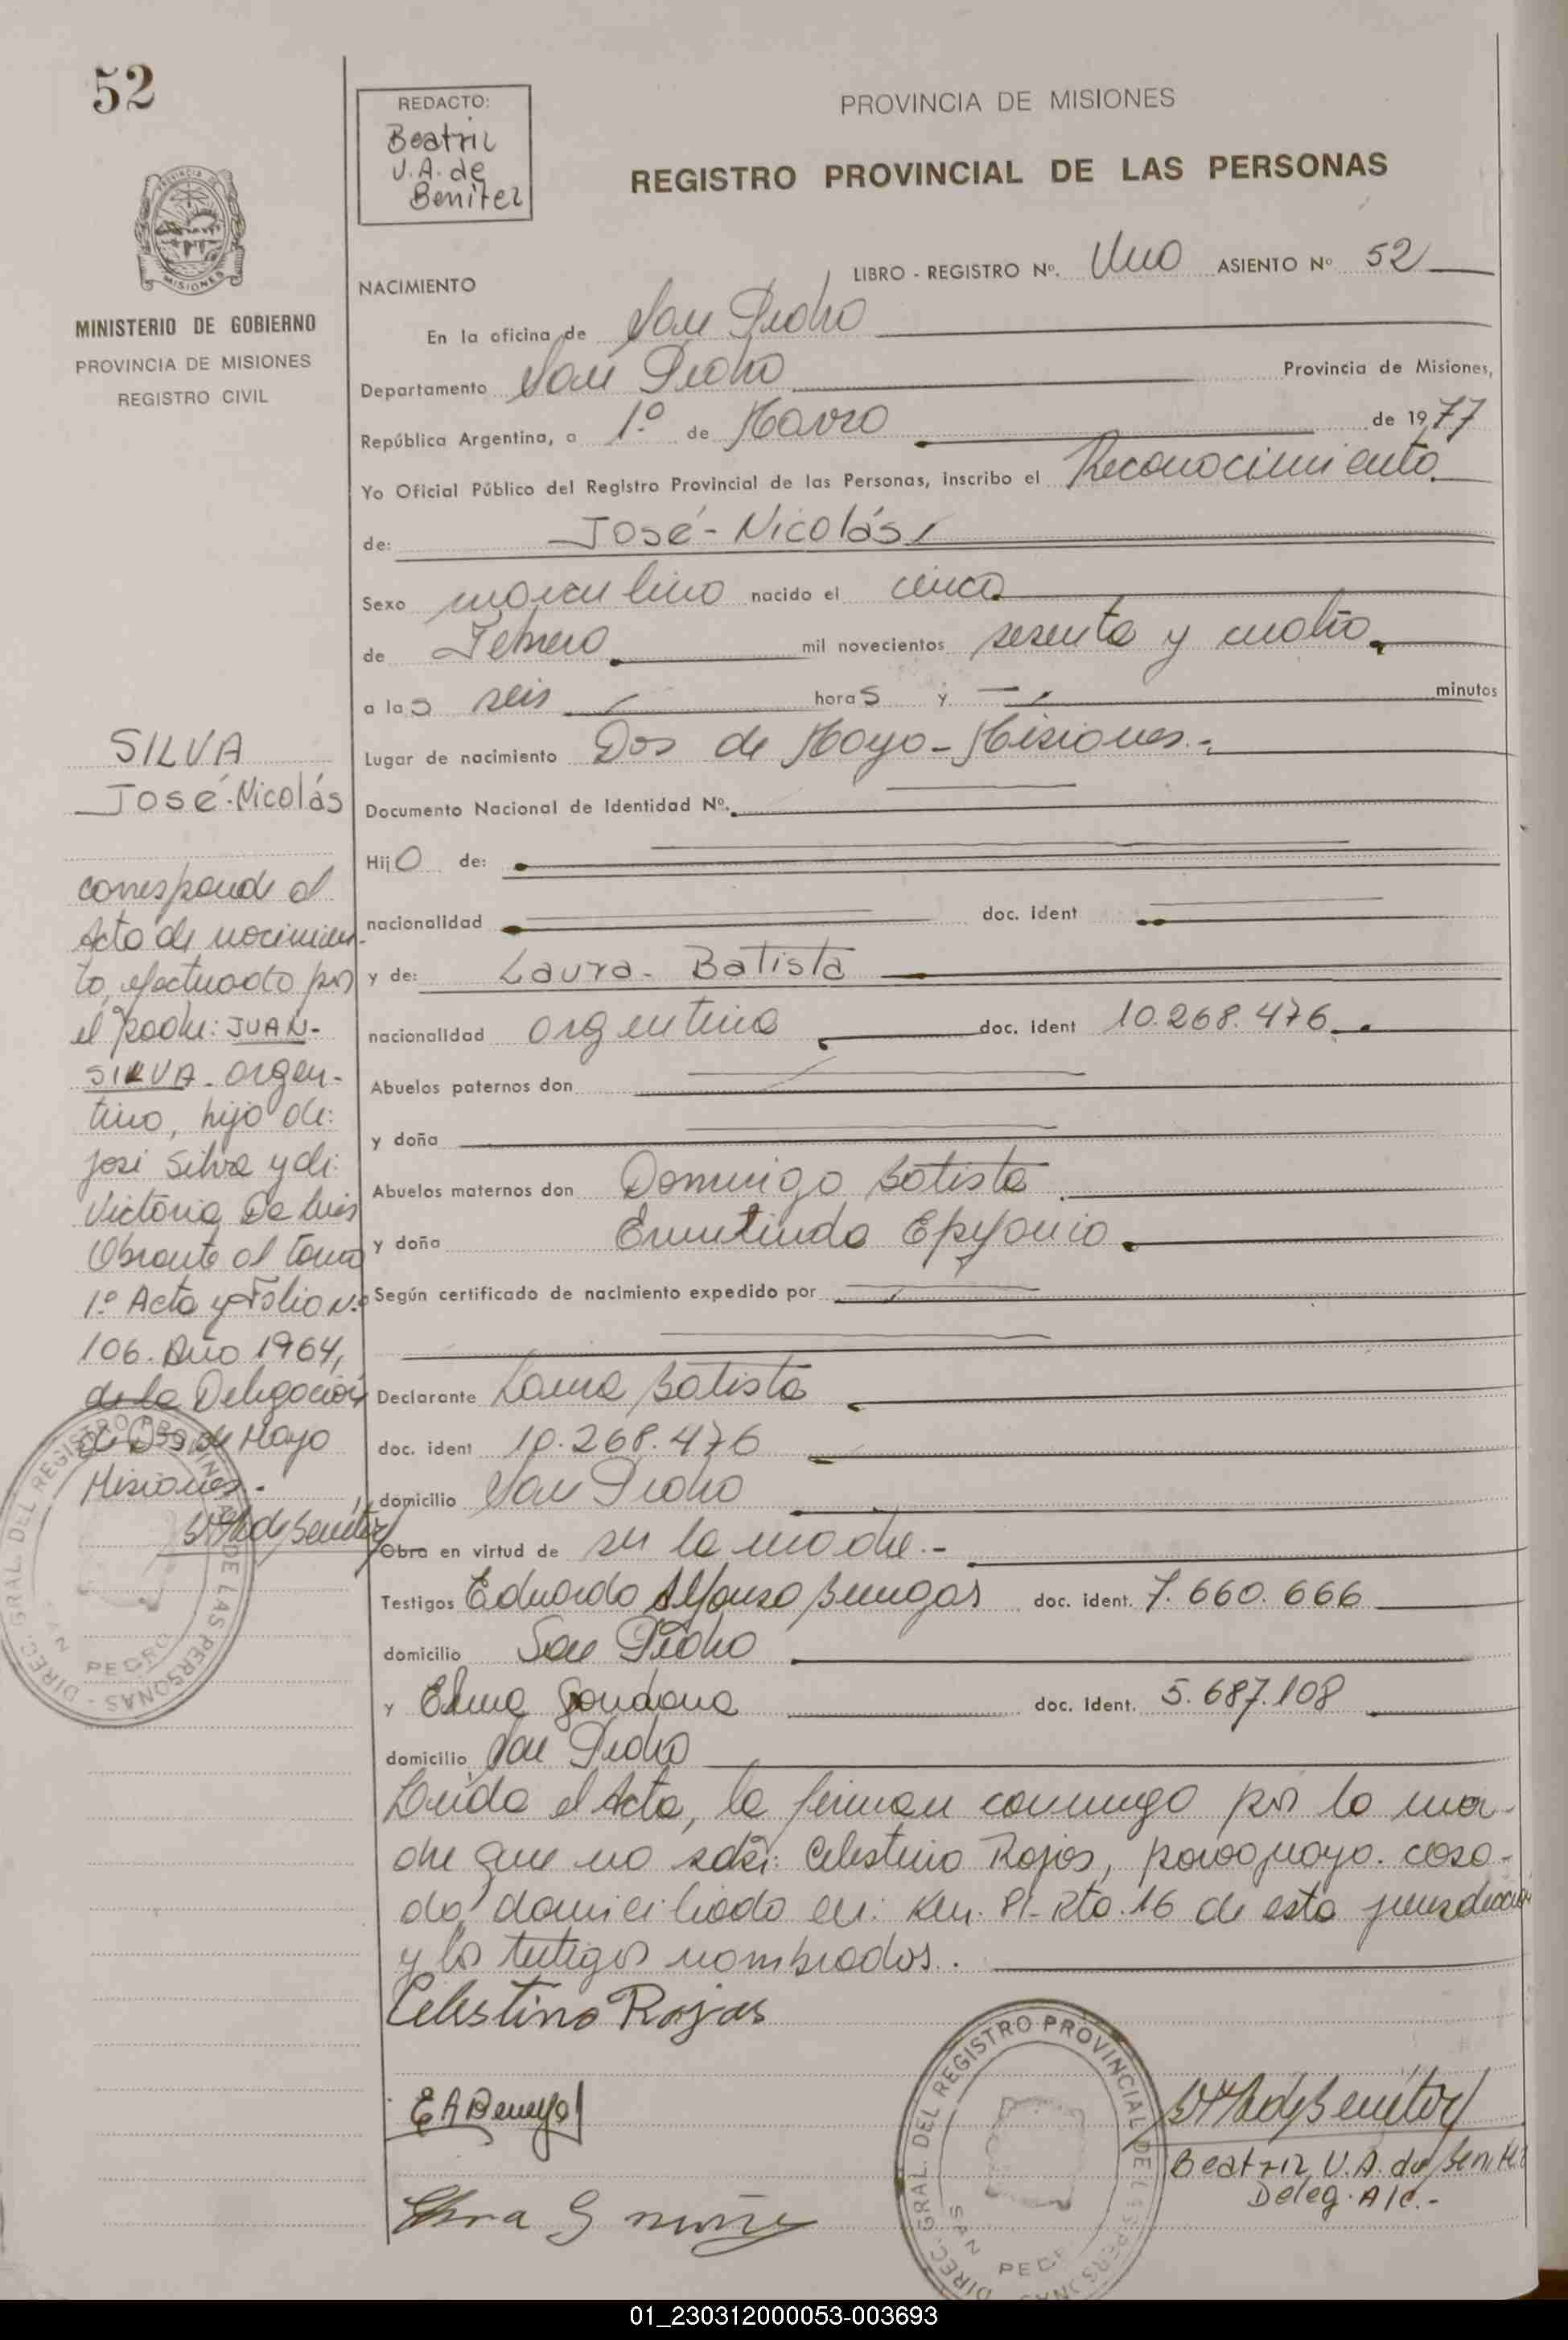 52
REDACTO:
Beatriz
V.A. de
Benitez
PROVINCIA DE MISIONES
REGISTRO PROVINCIAL DE LAS PERSONAS
MISIONES
MINISTERIO DE GOBIERNO
PROVINCIA DE MISIONES
REGISTRO CIVIL
LIBRO - REGISTRO Nº. Uno ASIENTO Nº 52
NACIMIENTO
En la oficina de San Pedro
Departamento San Pedro Provincia de Misiones,
República Argentina, a 1º de Marzo de 1977
Yo Oficial Público del Registro Provincial de las Personas, inscribo el Reconocimiento
de: José-Nicolás
Sexo masculino nacido el cinco
de Febrero mil novecientos sesenta y cuatro
a las seis horas y — minutos
Lugar de nacimiento Dos de Mayo - Misiones.-
Documento Nacional de Identidad Nº.
Hijo de:
nacionalidad doc. ident
y de: Laura - Batista
nacionalidad argentina doc. ident 10.268.476
Abuelos paternos don
y doña
Abuelos maternos don Domingo Batista
y doña Ermelinda Epifanio
Según certificado de nacimiento expedido por
Declarante Laura Batista
doc. ident 10.268.476
domicilio San Pedro
Obra en virtud de ser la madre.-
Testigos Eduardo Alfonso doc. ident. 7.660.666
domicilio San Pedro
y Elma doc. ident. 5.687.108
domicilio San Pedro
Leída el Acta, la firman conmigo por la ma-
dre que no sabe: Celestino Rojas, paraguayo. casa-
do domiciliado en: Km. Rta. 16 de esta jurisdicción
y los testigos nombrados.
Celestino Rojas
Beatriz V.A. de Benitez
Deleg. A/C.-
SILVA
José-Nicolás
corresponde al
Acta de nacimien-
to, efectuado por
el padre: JUAN-
SILVA - argen-
tino, hijo de:
José Silva y de:
Victoria Da Luis
Obrante al tomo
1º Acta y Folio Nº
106. Año 1964,
de la Delegación
de Dos de Mayo
Misiones.-
DIREC. GRAL. DEL REGISTRO PROVINCIAL DE LAS PERSONAS - SAN PEDRO
DIREC. GRAL. DEL REGISTRO PROVINCIAL DE LAS PERSONAS SAN PEDRO
01_230312000053-003693